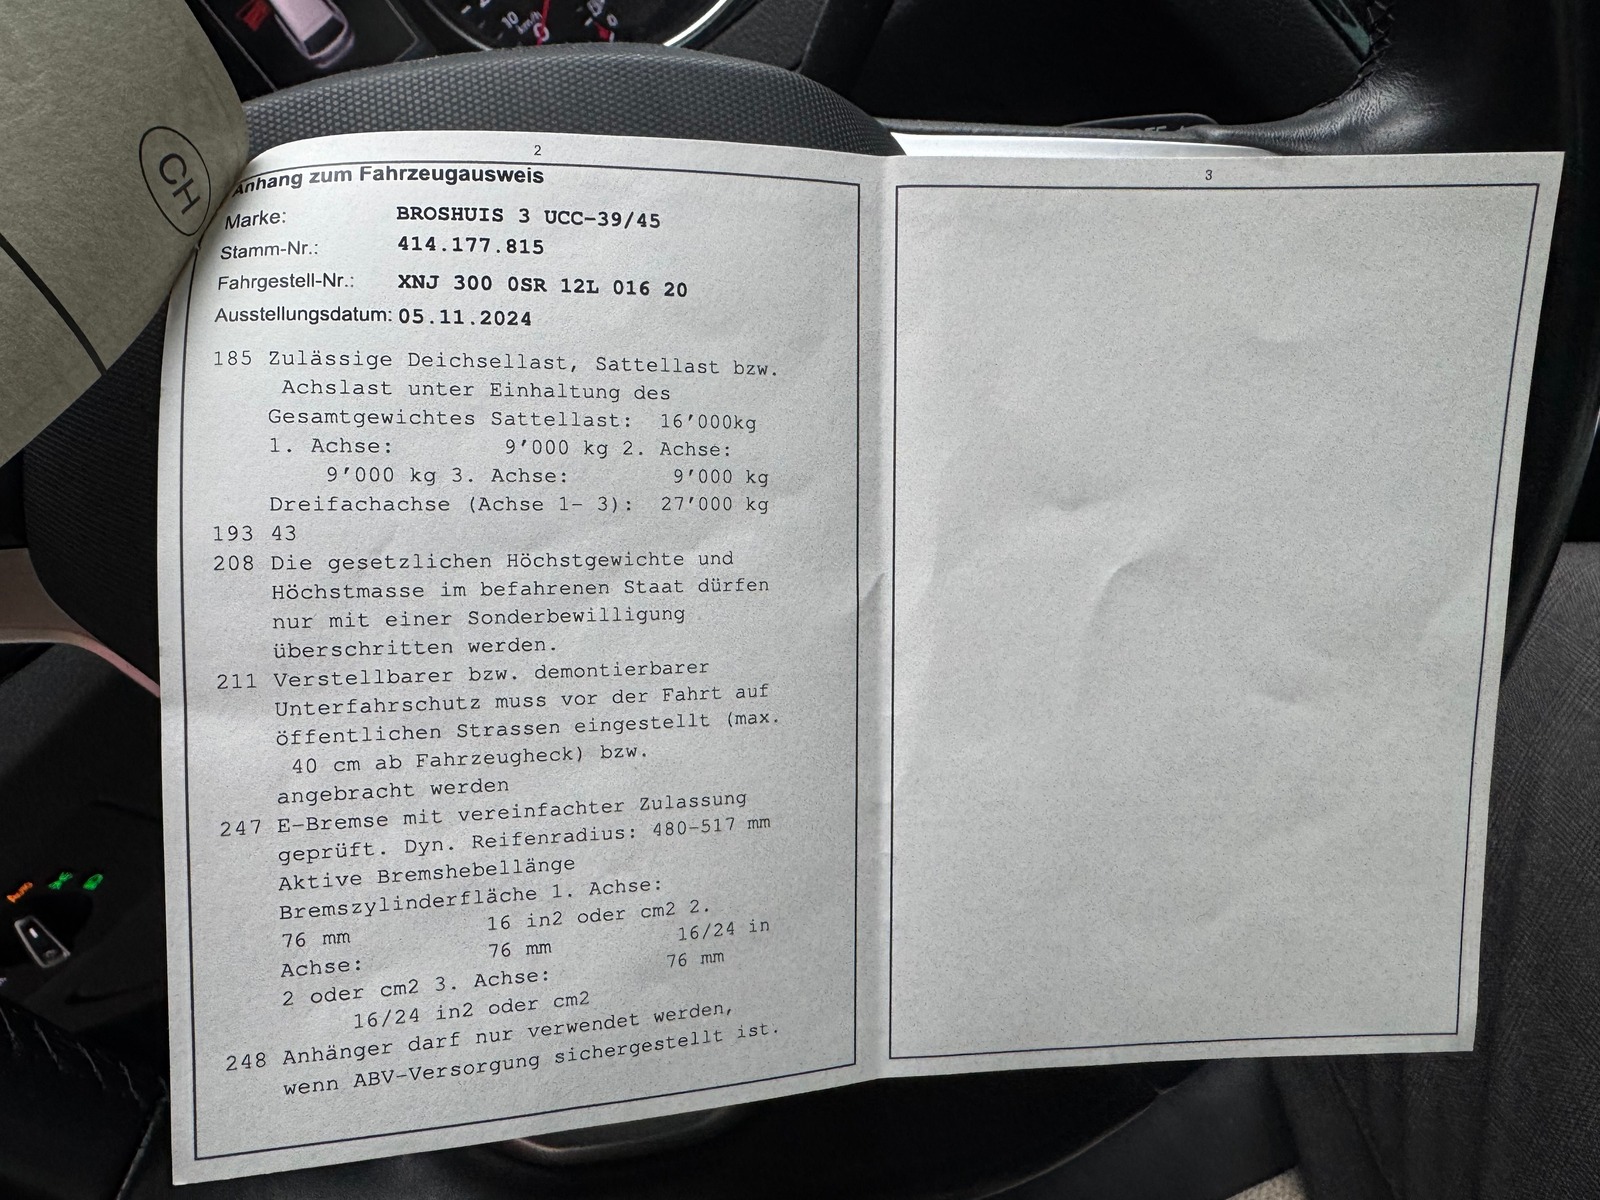 CH
2
Anhang zum Fahrzeugausweis
Marke: BROSHUIS 3 UCC-39/45
Stamm-Nr.: 414.177.815
Fahrgestell-Nr.: XNJ 300 0SR 12L 016 20
Ausstellungsdatum: 05.11.2024
185 Zulässige Deichsellast, Sattellast bzw.
Achslast unter Einhaltung des
Gesamtgewichtes Sattellast: 16'000kg
1. Achse: 9'000 kg 2. Achse:
9'000 kg 3. Achse: 9'000 kg
Dreifachachse (Achse 1- 3): 27'000 kg
193 43
208 Die gesetzlichen Höchstgewichte und
Höchstmasse im befahrenen Staat dürfen
nur mit einer Sonderbewilligung
überschritten werden.
211 Verstellbarer bzw. demontierbarer
Unterfahrschutz muss vor der Fahrt auf
öffentlichen Strassen eingestellt (max.
40 cm ab Fahrzeugheck) bzw.
angebracht werden
247 E-Bremse mit vereinfachter Zulassung
geprüft. Dyn. Reifenradius: 480-517 mm
Aktive Bremshebellänge
Bremszylinderfläche 1. Achse:
76 mm 16 in2 oder cm2 2.
Achse: 76 mm 16/24 in
2 oder cm2 3. Achse: 76 mm
16/24 in2 oder cm2
248 Anhänger darf nur verwendet werden,
wenn ABV-Versorgung sichergestellt ist.
3
10
km/h
0
0
AUTO